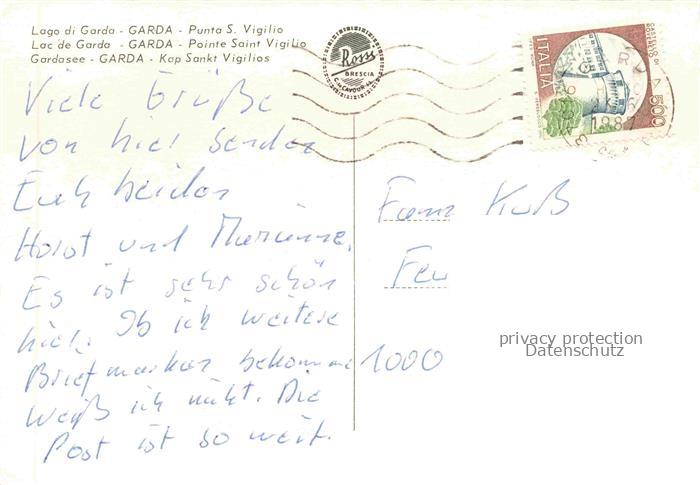 Lago di Garda - GARDA - Punta S. Vigilio
Lac de Garda - GARDA - Pointe Saint Vigilio
Gardasee - GARDA - Kap Sankt Vigilios
Rossi
BRESCIA
ITALIA
500
Viele Grüße
von hier senden
Euch beiden
Horst und Marianne.
Es ist sehr schön
hier. Ob ich weitere
Briefmarken bekomme
weiß ich nicht. Die
Post ist so weit.
Fam
1000
privacy protection
Datenschutz